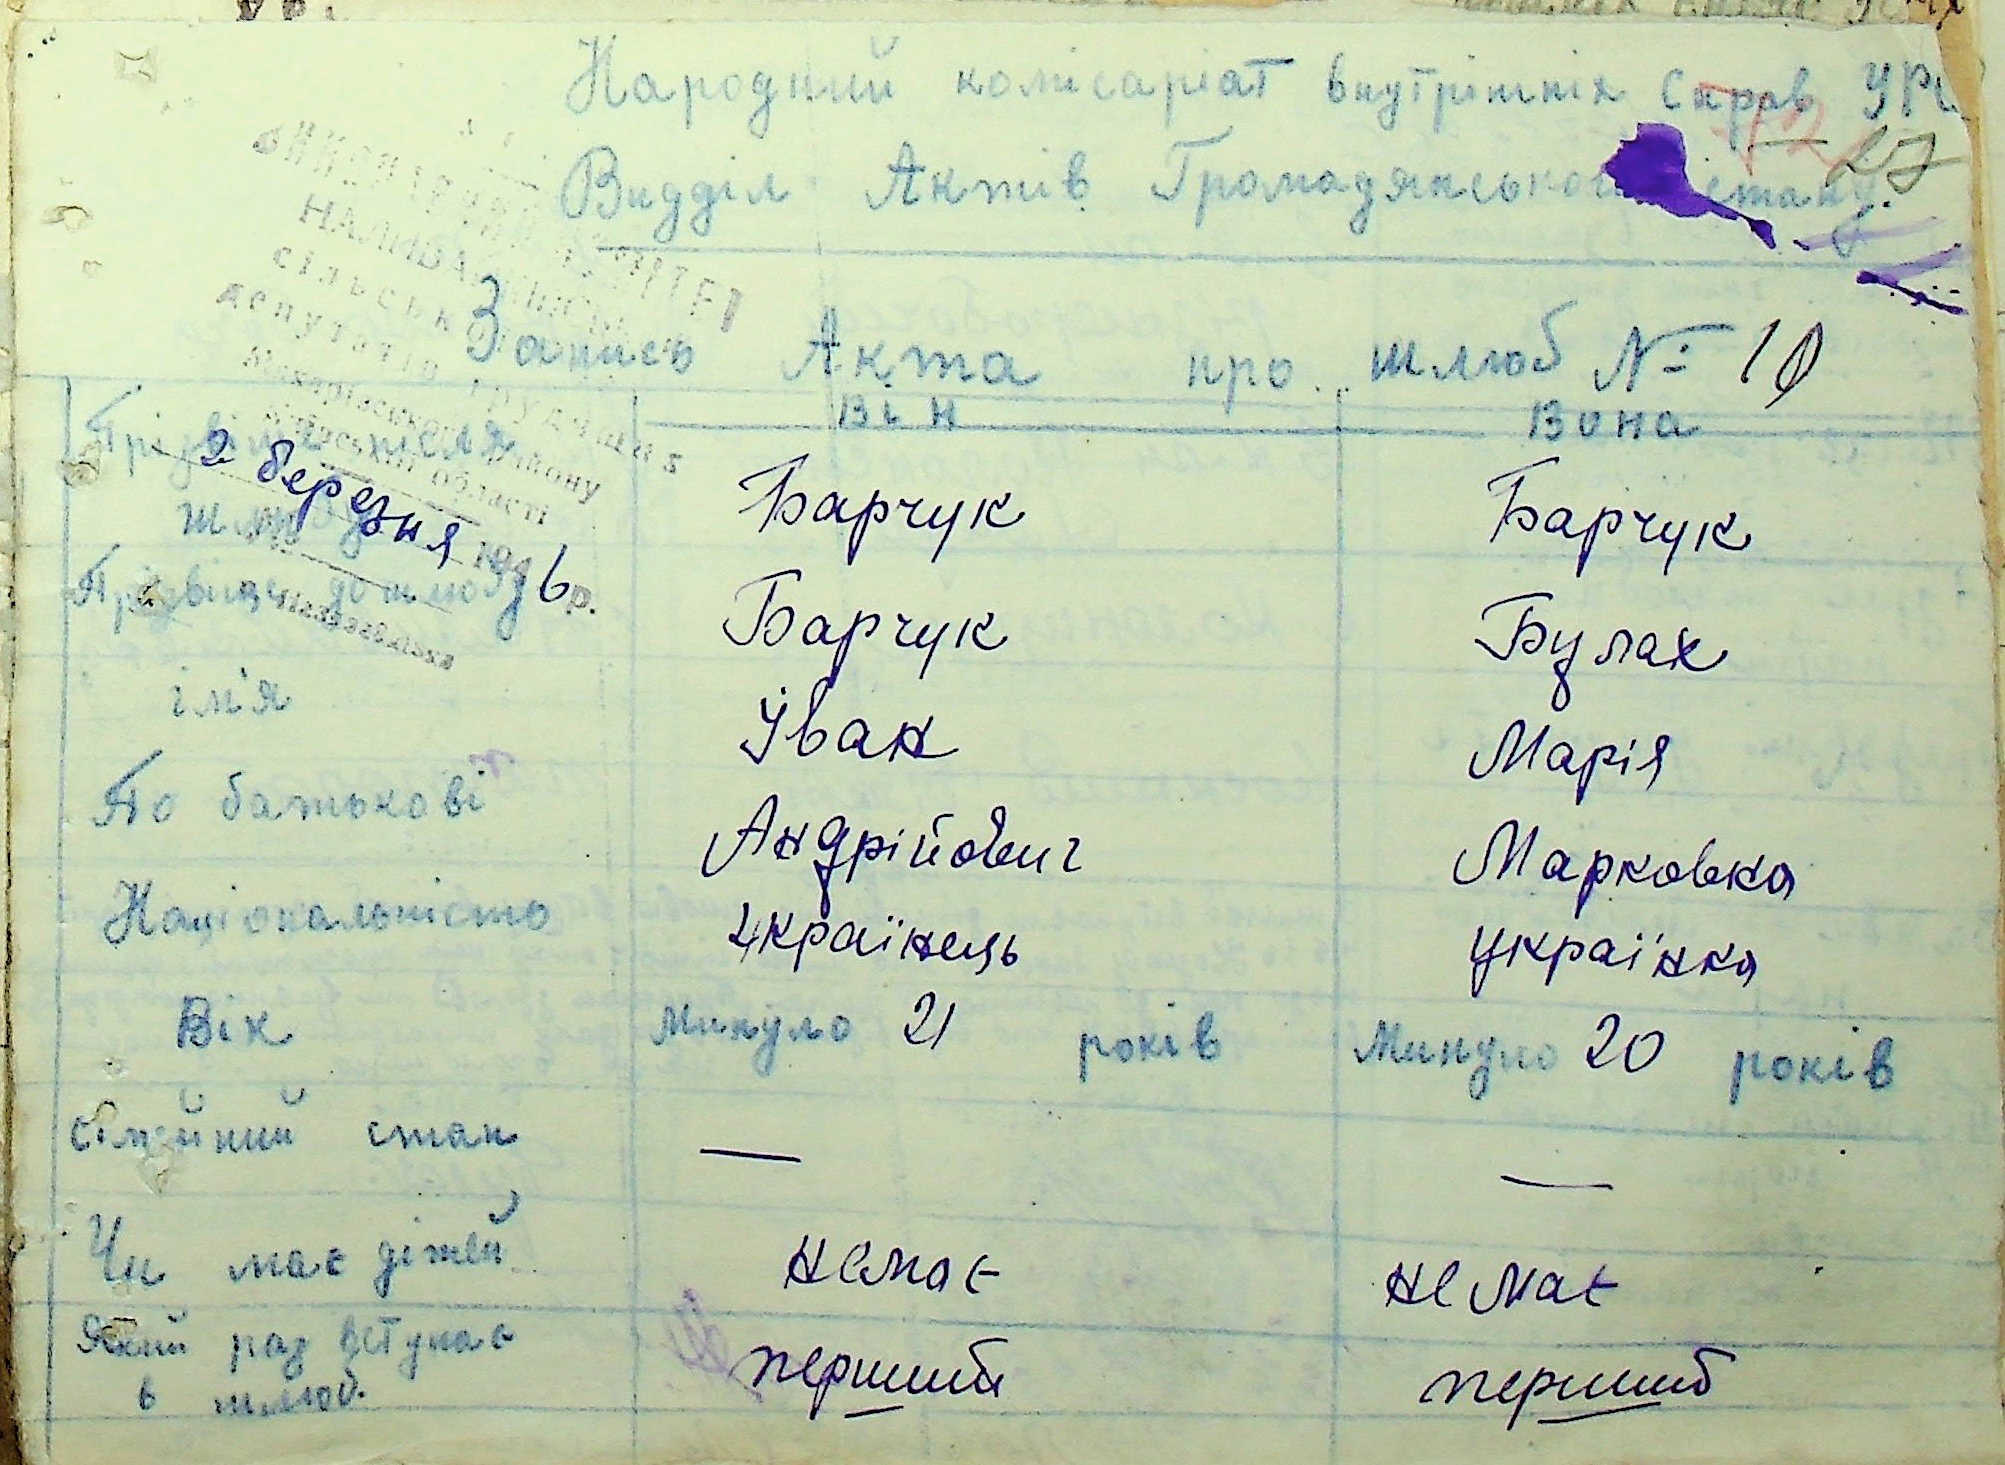 Народний комісаріат внутрішніх справ УРС
27
Видділ Актів Громадянського стану.
ВИКОНАВЧИЙ КОМІТЕТ
НАЛИВАЙКІВСЬК
сільськ
депутатів трудящих
Макарівського району
Київської області
2 березня 1946р.
Запись Акта про шлюб № 10
Він Вона
Прізвище після шлюбу Барчук Барчук
Прізвище до шлюбу Барчук Булах
ім'я Іван Марія
По батькові Андрійович Марковна
Національність Українець Українка
Вік Минуло 21 років Минуло 20 років
Сімейний стан — —
Чи має дітей немає немає
Який раз вступає в шлюб. первший перший